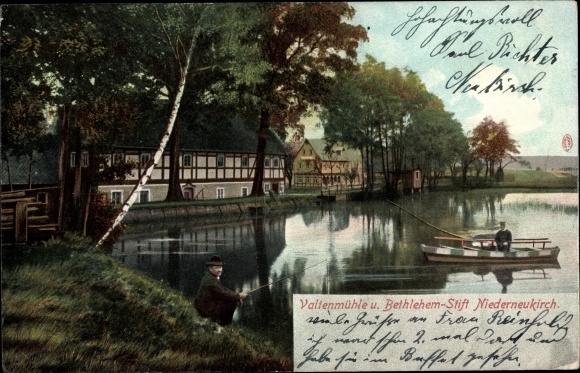 Hochachtungsvoll
Paul Richter
Neukirch.
Valtenmühle u. Bethlehem-Stift Niederneukirch.
viele Grüße an Frau Reinhold
ich war schon 2. mal dort und
habe sie im Buffet gesehn.